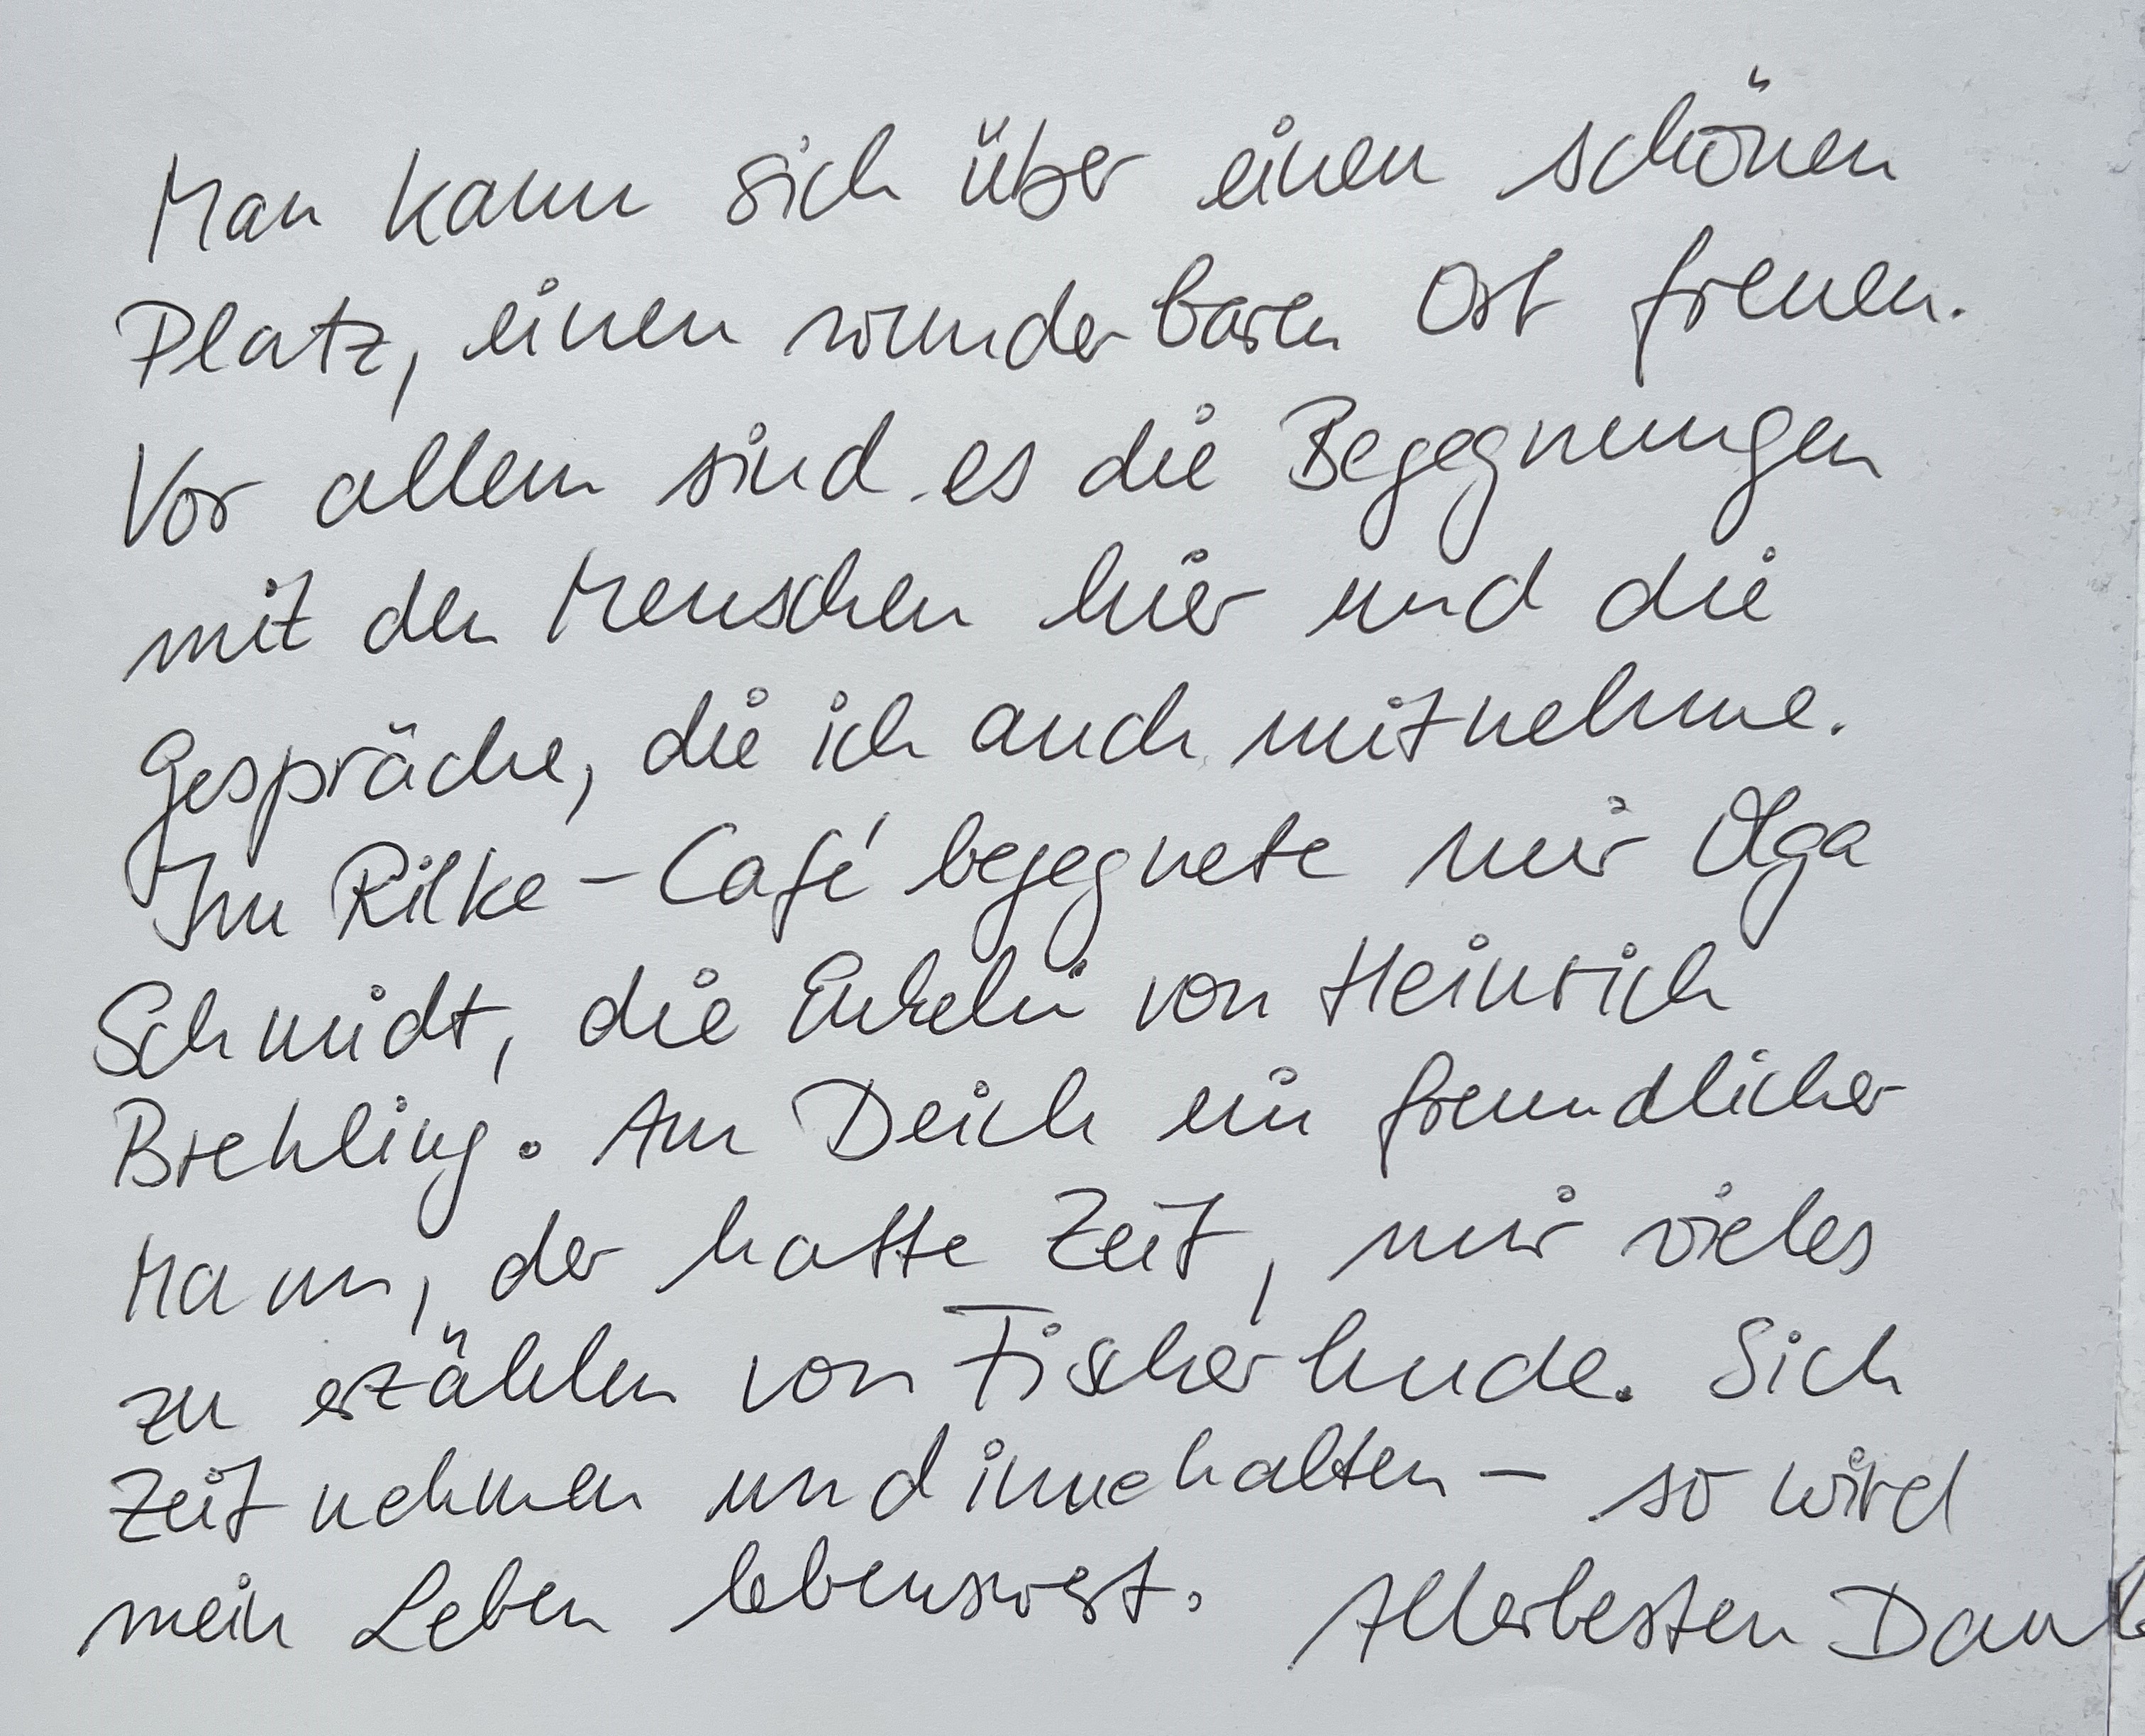 Man kann sich über einen schönen
Platz, einen wunderbaren Ort freuen.
Vor allem sind es die Begegnungen
mit den Menschen hier und die
Gespräche, die ich auch mitnehme.
Im Rilke-Café begegnete mir Olga
Schmidt, die Enkelin von Heinrich
Brehling. Am Deich ein freundlicher
Mann, der hatte Zeit, mir vieles
zu erzählen von Fischerhude. Sich
Zeit nehmen und innehalten – so wird
mein Leben lebenswert. Allerbesten Dank